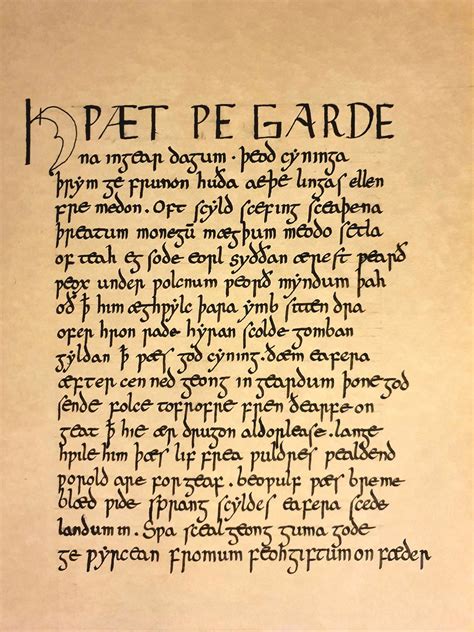 HǷÆT ǷE GARDE
na ingear dagum · þeod cyninga
þrym ge frunon huða æþe lingas ellen
fre medon. Oft scyld scefing sceaþena
þreatum monegū mægþum meodo setla
of teah eg sode eorl syððan ærest ƿearð
ƿeox under ƿolcnum ƿeorð myndum þah
oð ꝥ him æghƿylc þara ymb sitten dra
ofer hron rade hyran scolde gomban
gyldan ꝥ ƿæs god cyning. ðæm eafera
æfter cen ned geong in geardum þone god
sende folce tofrofre fren ðearfe on
geat ꝥ hie ær drugon aldorlease. lange
hƿile him þæs lif frea ƿuldres ƿealdend
ƿorold are for geaf. beoƿulf ƿæs breme
blæd ƿide sprang scyldes eafera scede
landum in. Sƿa sceal geong guma gode
ge ƿyrcean fromum feohgiftum on fæder